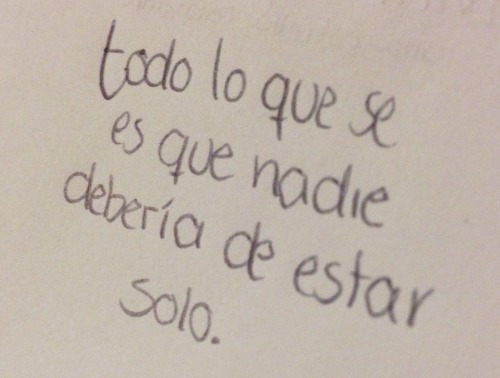 todo lo que se
es que nadie
debería de estar
solo.